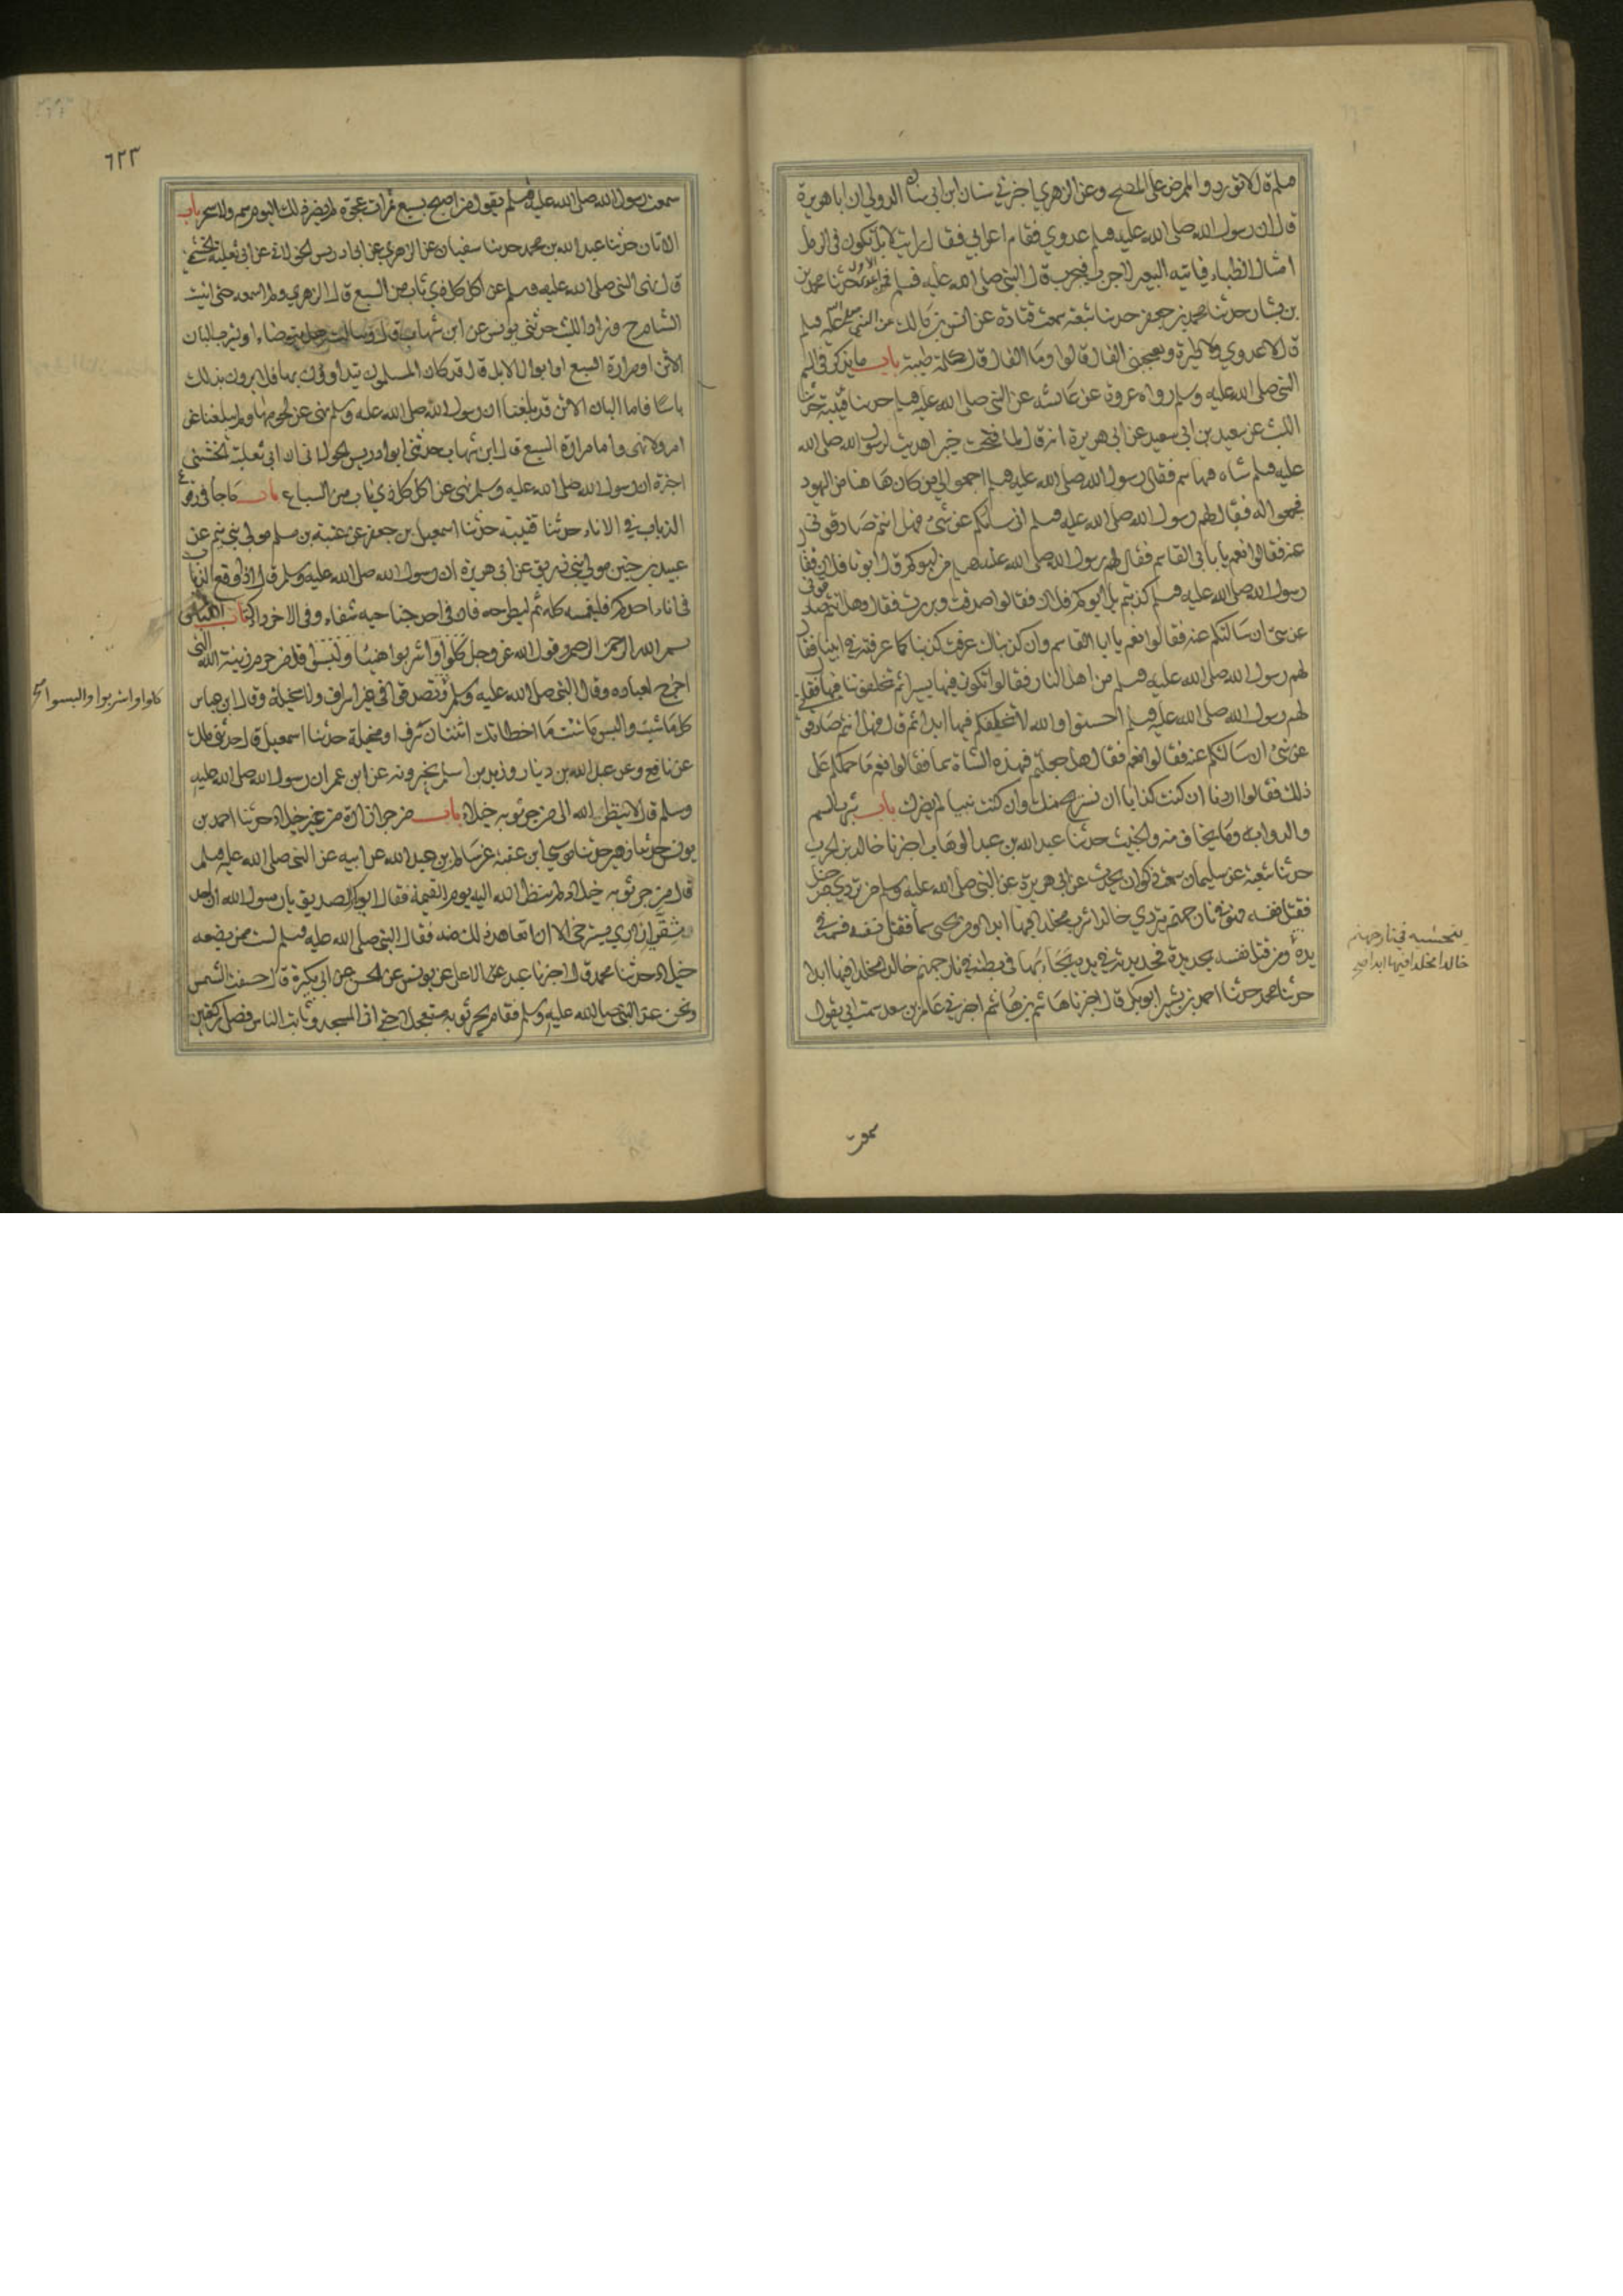 وسلم قال لا توردوا الممرض على المصح وعن الزهري اخبرني سنان ابن ابي سنان الدولي ان ابا هريرة
قال ان رسول الله صلى الله عليه وسلم لا عدوي فقام اعرابي فقال ارايت الابل تكون في الرمل
امثال الظباء فياتيه البعير الاجرب فتجرب قال النبي صلى الله عليه وسلم فمن اعدي الاول حدثنا محمد بن
بن بشار حدثنا محمد بن جعفر حدثنا شعبة سمعت قتادة عن انس بن مالك عن النبي صلى الله عليه وسلم
قال لا عدوي ولا طيرة ويعجبني الفال قالوا وما الفال قال كلمة طيبة باب ما يذكر في السم
النبي صلى الله عليه وسلم رواه عروة عن عائشة عن النبي صلى الله عليه وسلم حدثنا قتيبة حدثنا
الليث عن سعيد بن ابي سعيد عن ابي هريرة انه قال لما فتحت خيبر اهديت لرسول الله صلى الله
عليه وسلم شاه فيها سم فقال رسول الله صلى الله عليه وسلم اجمعوا لي من كان هاهنا من اليهود
فجمعوا له فقال لهم رسول الله صلى الله عليه وسلم اني سائلكم عن شئ فهل انتم صادقوني
عنه فقالوا نعم يا ابا القاسم فقال لهم رسول الله صلى الله عليه وسلم من ابوكم قالوا ابونا فلان فقال
رسول الله صلى الله عليه وسلم كذبتم بل ابوكم فلان فقالوا صدقت وبررت فقال وهل انتم صادقوني
عن شئ ان سالتكم عنه فقالوا نعم يا ابا القاسم وان كذبناك عرفت كذبنا كما عرفته في ابينا فقال
لهم رسول الله صلى الله عليه وسلم من اهل النار فقالوا نكون فيها يسيرا ثم تخلفوننا فيها فقال
لهم رسول الله صلى الله عليه وسلم اخسئوا والله لا نخلفكم فيها ابدا ثم قال فهل انتم صادقوني
عن شئ ان سالتكم عنه فقالوا نعم فقال هل جعلتم في هذه الشاة سما فقالوا نعم ما حملكم على
ذلك فقالوا اردنا ان كنت كذابا ان نستريح منك وان كنت نبيا لم يضرك باب شرب السم
والدواب وما يخاف منه والخبيث حدثنا عبد الله بن عبد الوهاب اخبرنا خالد بن الحرث
حدثنا شعبة عن سليمان سمعت ذكوان يحدث عن ابي هريرة عن النبي صلى الله عليه وسلم من تردي من جبل
فقتل نفسه فهو في نار جهنم يتردي خالدا فيه مخلدا فيها ابدا ومن تحسى سما فقتل نفسه فسمه في
يده ومن قتل نفسه بحديدة فحديدته في يده يتجاء بها في بطنه في نار جهنم خالدا مخلدا فيها ابدا
حدثنا محمد حدثنا احمد بن بشير ابو بكر قال اخبرنا هاشم بن هاشم اخبرني عامر بن سعد سمعت ابي يقول
يتحسيه في نار جهنم
خالدا مخلدا فيها ابدا صح
سمعت
٦٢٣
سمعت رسول الله صلى الله عليه وسلم يقول من اصبح بسبع تمرات عجوة لم يضره ذلك اليوم سم ولا سحر باب
الاتان حدثنا عبد الله بن محمد حدثنا سفيان عن الزهري عن ابي ادريس الخولاني عن ابي ثعلبة الخشني
قال نهى النبي صلى الله عليه وسلم عن اكل كل ذي ناب من السبع قال الزهري ولم اسمعه حتى اتيت
الشام ح وزاد الليث حدثني يونس عن ابن شهاب قال وسالته هل يتوضاء او يشرب البان
الاتن او مرارة السبع او ابوال الابل قال قد كان المسلمون يتداوون بها فلا يرون بذلك
باسا فاما البان الاتن قد بلغنا ان رسول الله صلى الله عليه وسلم نهى عن لحومها ولم يبلغنا عن
امر ولا نهى واما مرارة السبع قال ابن شهاب حدثني ابو ادريس الخولاني ان ابي ثعلبة الخشني
اخبره ان رسول الله صلى الله عليه وسلم نهى عن اكل كل ذي ناب من السباع باب ما جا في وقع
الذباب في الاناء حدثنا قتيبة حدثنا اسمعيل بن جعفر عن عتبة بن مسلم مولى بني تيم عن
عبيد بن حنين مولى بني زريق عن ابي هريرة ان رسول الله صلى الله عليه وسلم قال اذا وقع الذباب
في اناء احدكم فليغمسه كله ثم ليطرحه فان في احد جناحيه شفاء وفي الاخر داء كتاب اللباس
بسم الله الرحمن الرحيم وقول الله عز وجل كلوا واشربوا هنيئا ولبسوا قل من حرم زينة الله التي
اخرج لعباده وقال النبي صلى الله عليه وسلم وتصدقوا في غير اسراف ولا مخيلة وقال ابن عباس
كل ما شئت والبس ما شئت ما اخطاتك اثنتان سرف او مخيلة حدثنا اسمعيل قال حدثني مالك
عن نافع وعن عبد الله بن دينار وزيد بن اسلم يخبرونه عن ابن عمر ان رسول الله صلى الله عليه
وسلم قال لا ينظر الله الى من جر ثوبه خيلاء باب من جر ازاره من غير خيلاء حدثنا احمد بن
يونس حدثنا زهير حدثنا موسى ابن عقبة عن سالم بن عبد الله عن ابيه عن النبي صلى الله عليه وسلم
قال من جر ثوبه خيلاء لم ينظر الله اليه يوم القيمة فقال ابو بكر الصديق يا رسول الله ان احد
شقي ازاري يسترخي الا ان اتعاهد ذلك منه فقال النبي صلى الله عليه وسلم لست ممن يصنعه
خيلاء حدثنا محمد قال اخبرنا عبد الاعلى عن يونس عن الحسن عن ابي بكرة قال خسفت الشمس
ونحن عند النبي صلى الله عليه وسلم فقام يجر ثوبه مستعجلا حتى اتى المسجد وثاب الناس فصلى ركعتين
كلوا واشربوا والبسوا صح